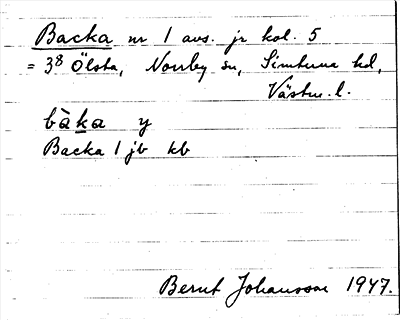 Backa nr 1 avs. jr kol. 5
= 3⁸ Ölsta, Norrby sn, Simtuna hd,
Västm. l.
bàka y
Backa 1 jb kb
Bernt Johansson 1947.